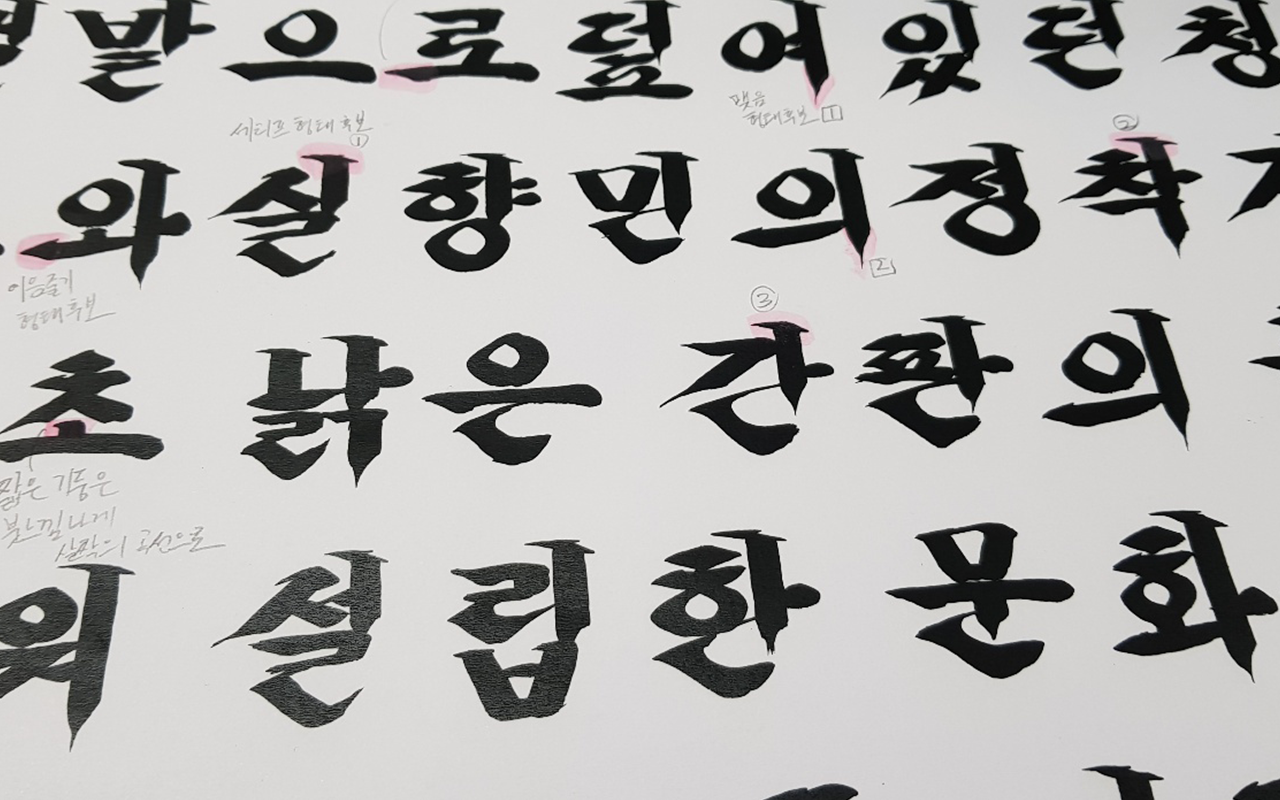 발으로덮여있던청
맺음
형태후보 1
세리프 형태 후보
1
2
와실향민의정착
2
이음줄기
형태후보
3
초 낡은 간판의
짧은 기둥은
붓느낌나게
살짝의 곡선으로
의 설립한 문화